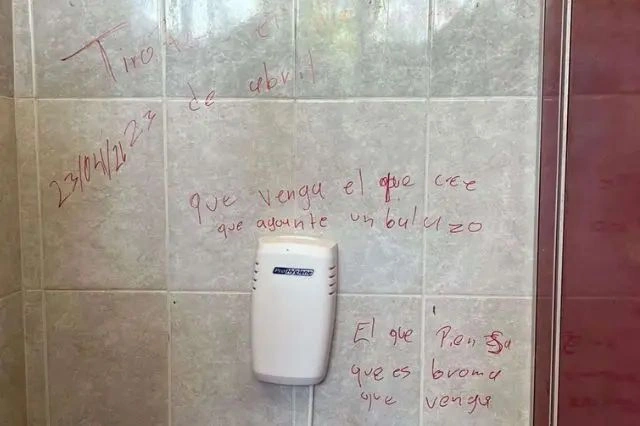 Tiroteo el
23 de abril
23/04/26
que venga el que cree
que aguante un balazo
ProHygiene
El que Piensa
que es broma
que venga